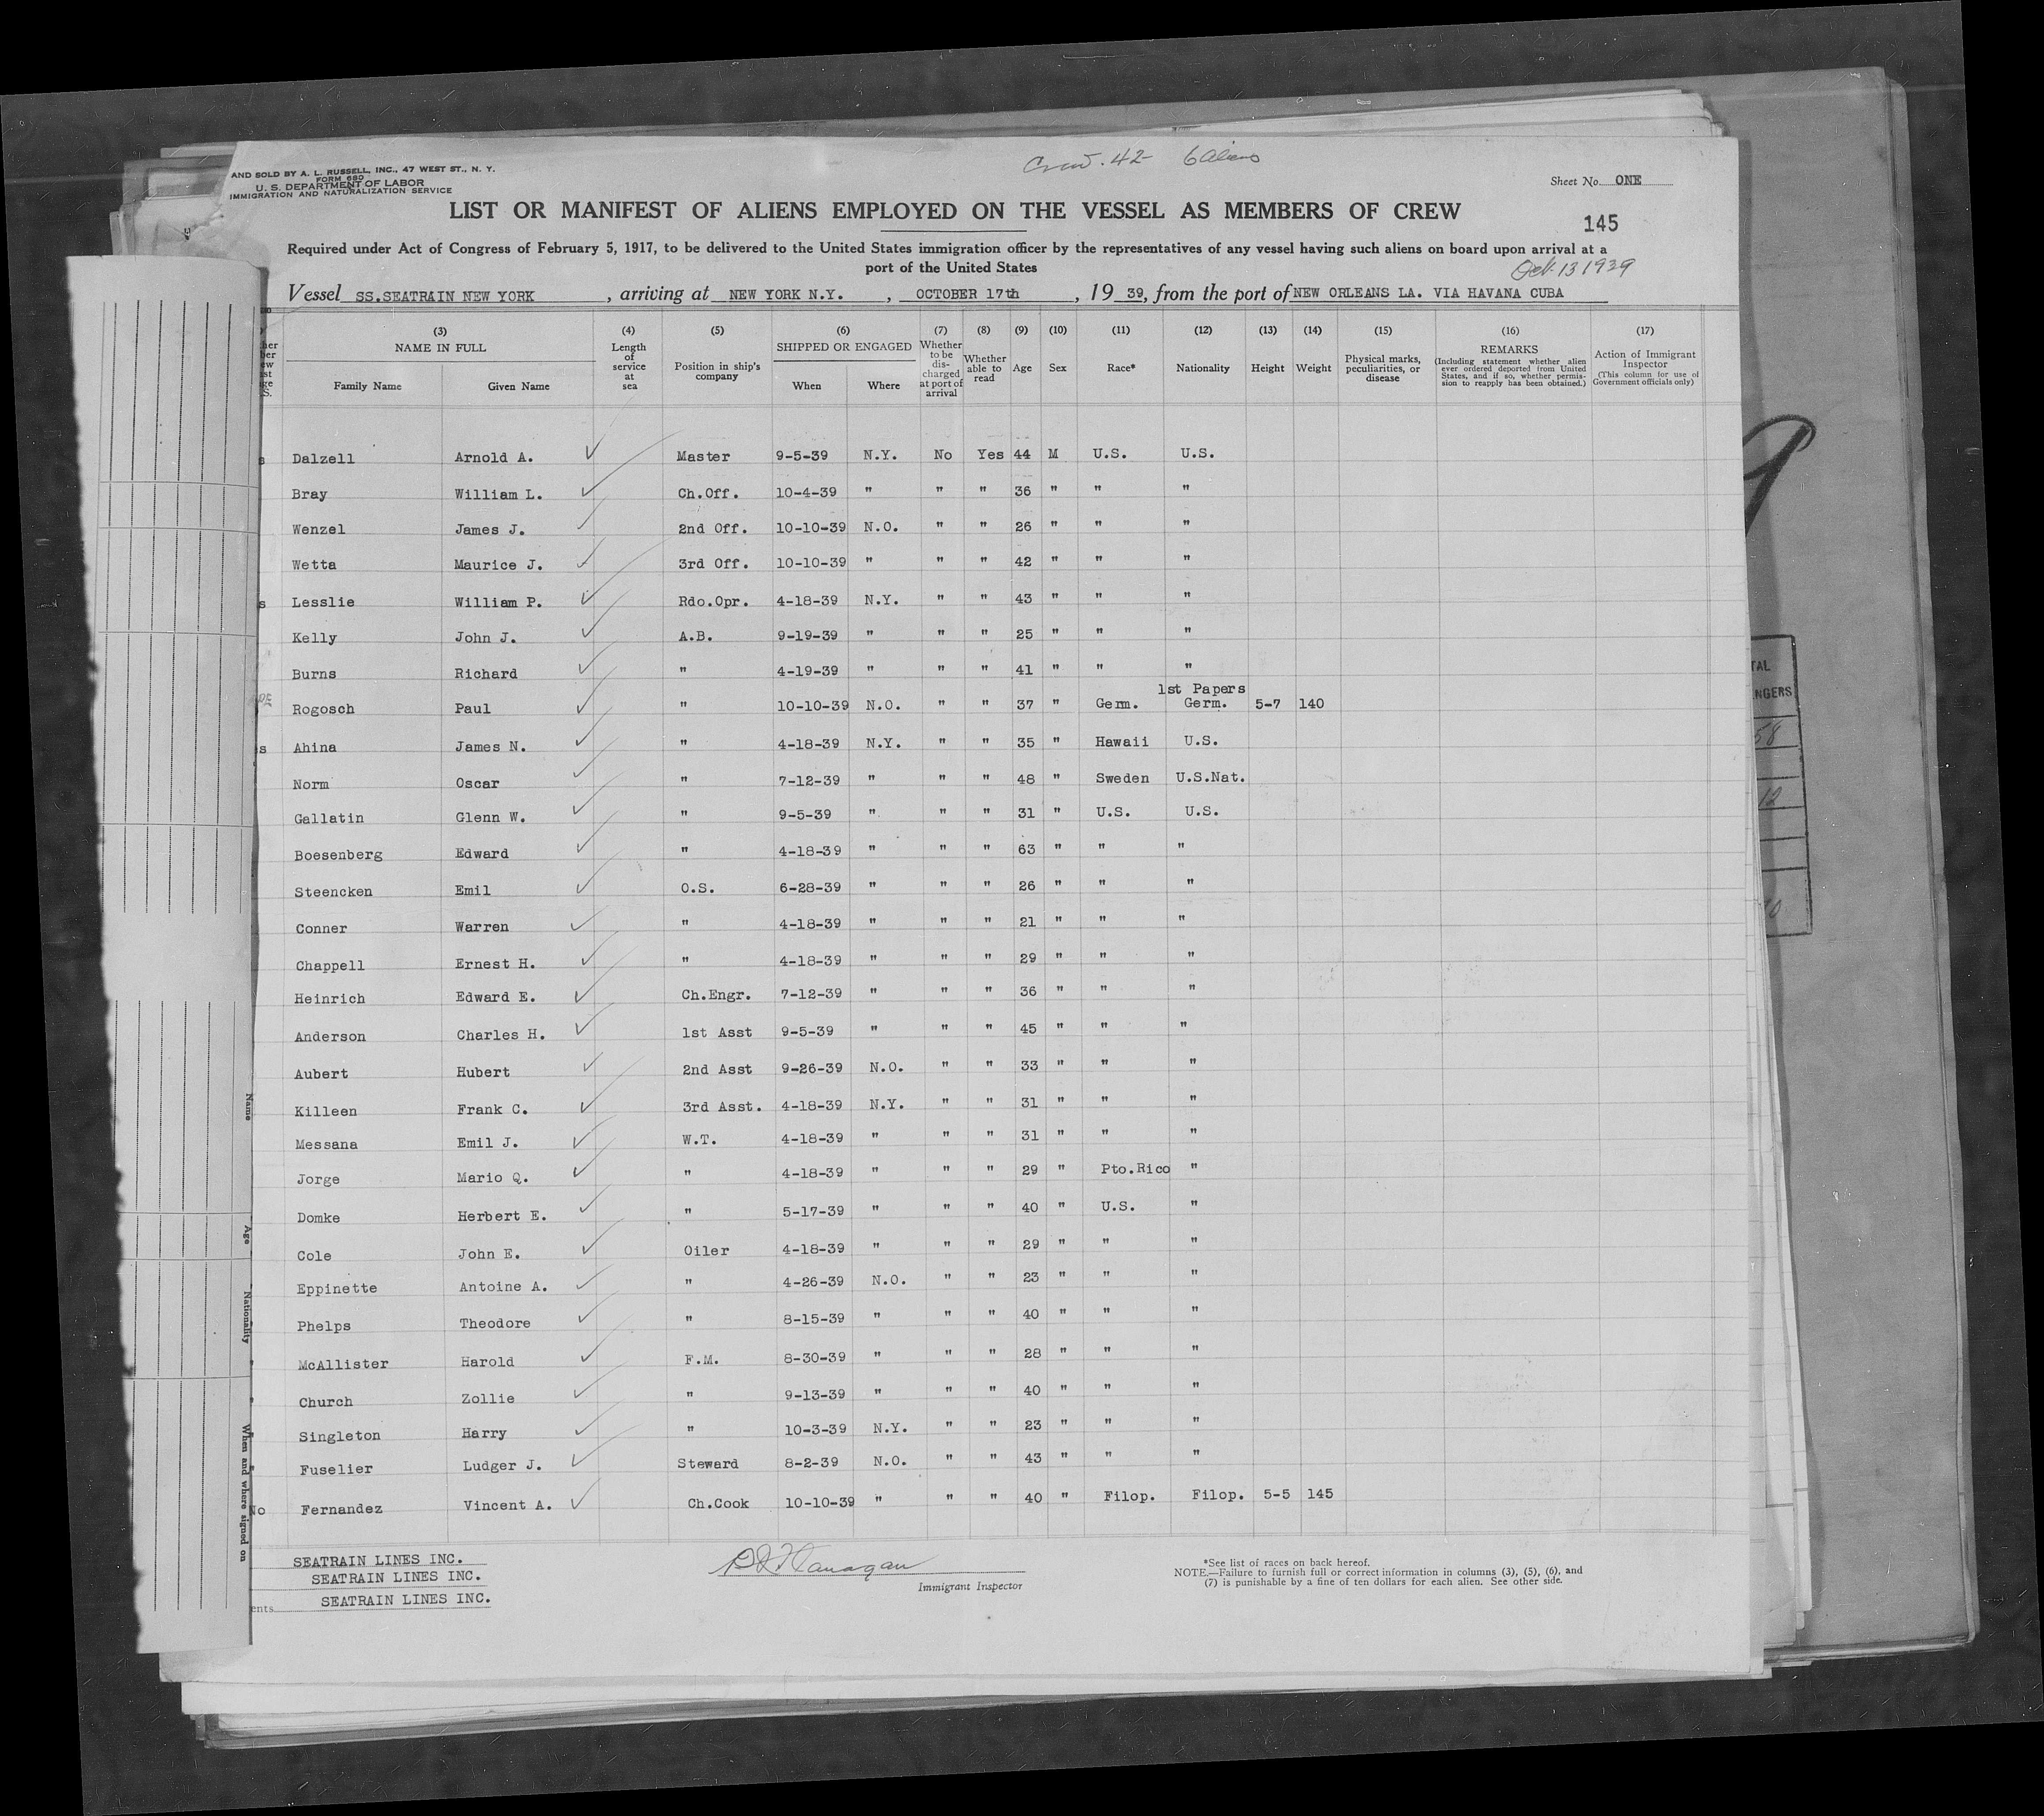 Crew. 42- 6 Aliens
AND SOLD BY A. L. RUSSELL, INC., 47 WEST ST., N. Y.
FORM 680
U. S. DEPARTMENT OF LABOR
IMMIGRATION AND NATURALIZATION SERVICE
Sheet No. ONE
LIST OR MANIFEST OF ALIENS EMPLOYED ON THE VESSEL AS MEMBERS OF CREW
145
Required under Act of Congress of February 5, 1917, to be delivered to the United States immigration officer by the representatives of any vessel having such aliens on board upon arrival at a
port of the United States
Oct. 13 1939
Vessel SS.SEATRAIN NEW YORK, arriving at NEW YORK N.Y., OCTOBER 17th, 19 39, from the port of NEW ORLEANS LA. VIA HAVANA CUBA
(3) (4) (5) (6) (7) (8) (9) (10) (11) (12) (13) (14) (15) (16) (17)
NAME IN FULL
Family Name Given Name
Length of service at sea
Position in ship's company
SHIPPED OR ENGAGED
When Where
Whether to be dis-charged at port of arrival
Whether able to read
Age
Sex
Race*
Nationality
Height
Weight
Physical marks, peculiarities, or disease
REMARKS
(Including statement whether alien ever ordered deported from United States, and if so, whether permis-sion to reapply has been obtained.)
Action of Immigrant Inspector
(This column for use of Government officials only)
Dalzell Arnold A. Master 9-5-39 N.Y. No Yes 44 M U.S. U.S.
Bray William L. Ch.Off. 10-4-39 " " " 36 " " "
Wenzel James J. 2nd Off. 10-10-39 N.O. " " 26 " " "
Wetta Maurice J. 3rd Off. 10-10-39 " " " 42 " " "
Lesslie William P. Rdo.Opr. 4-18-39 N.Y. " " 43 " " "
Kelly John J. A.B. 9-19-39 " " " 25 " " "
Burns Richard " 4-19-39 " " " 41 " " "
1st Papers
Rogosch Paul " 10-10-39 N.O. " " 37 " Germ. Germ. 5-7 140
Ahina James N. " 4-18-39 N.Y. " " 35 " Hawaii U.S.
Norm Oscar " 7-12-39 " " " 48 " Sweden U.S.Nat.
Gallatin Glenn W. " 9-5-39 " " " 31 " U.S. U.S.
Boesenberg Edward " 4-18-39 " " " 63 " " "
Steencken Emil O.S. 6-28-39 " " " 26 " " "
Conner Warren " 4-18-39 " " " 21 " " "
Chappell Ernest H. " 4-18-39 " " " 29 " " "
Heinrich Edward E. Ch.Engr. 7-12-39 " " " 36 " " "
Anderson Charles H. 1st Asst 9-5-39 " " " 45 " " "
Aubert Hubert 2nd Asst 9-26-39 N.O. " " 33 " " "
Killeen Frank C. 3rd Asst. 4-18-39 N.Y. " " 31 " " "
Messana Emil J. W.T. 4-18-39 " " " 31 " " "
Jorge Mario Q. " 4-18-39 " " " 29 " Pto.Rico "
Domke Herbert E. " 5-17-39 " " " 40 " U.S. "
Cole John E. Oiler 4-18-39 " " " 29 " " "
Eppinette Antoine A. " 4-26-39 N.O. " " 23 " " "
Phelps Theodore " 8-15-39 " " " 40 " " "
McAllister Harold F.M. 8-30-39 " " " 28 " " "
Church Zollie " 9-13-39 " " " 40 " " "
Singleton Harry " 10-3-39 N.Y. " " 23 " " "
Fuselier Ludger J. Steward 8-2-39 N.O. " " 43 " " "
No Fernandez Vincent A. Ch.Cook 10-10-39 " " " 40 " Filop. Filop. 5-5 145
SEATRAIN LINES INC.
SEATRAIN LINES INC.
SEATRAIN LINES INC.
Flanagan
Immigrant Inspector
*See list of races on back hereof.
NOTE.—Failure to furnish full or correct information in columns (3), (5), (6), and
(7) is punishable by a fine of ten dollars for each alien. See other side.
Name
Age
Nationality
When and where signed on
58
12